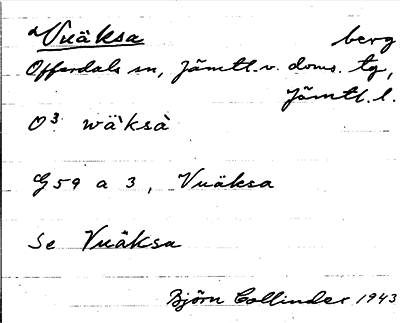 Vuäksa berg
Offerdals sn, Jämtl. v. doms. tg,
Jämtl. l.
O³ wä̀ksà
G 59 a 3, Vuäksa
Se Vuäksa
Björn Collinder 1943